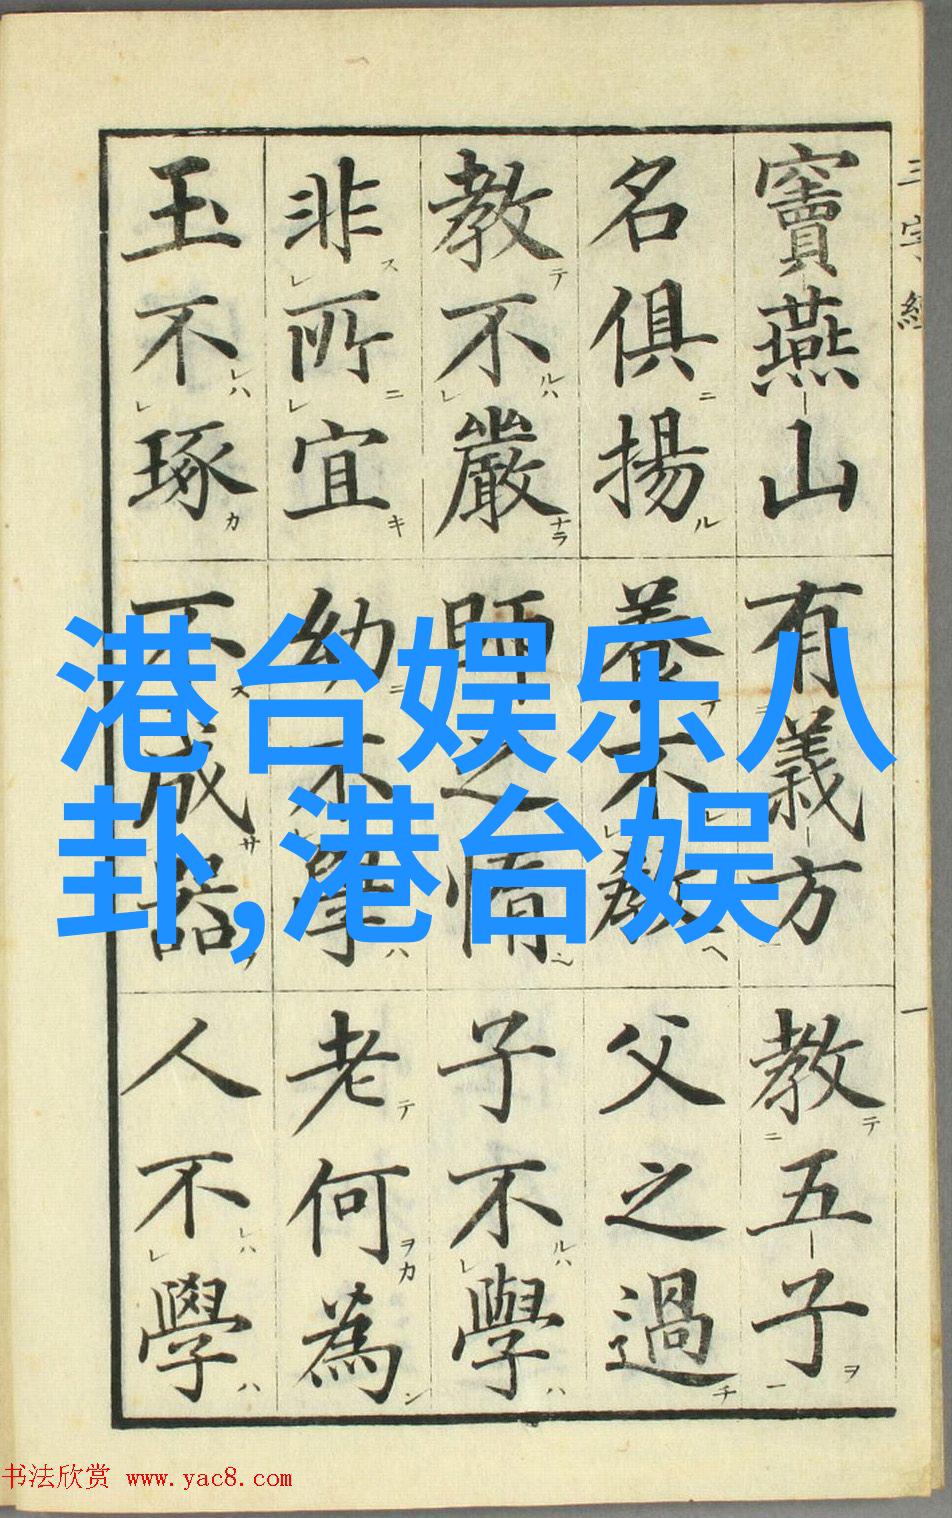 三字經
竇燕山有義方教五子
名俱揚養不教父之過
教不嚴師之惰子不學
非所宜幼不學老何為
玉不琢不成器人不學
一
港台娱乐八
卦,港台娱
书法欣赏 www.yac8.com